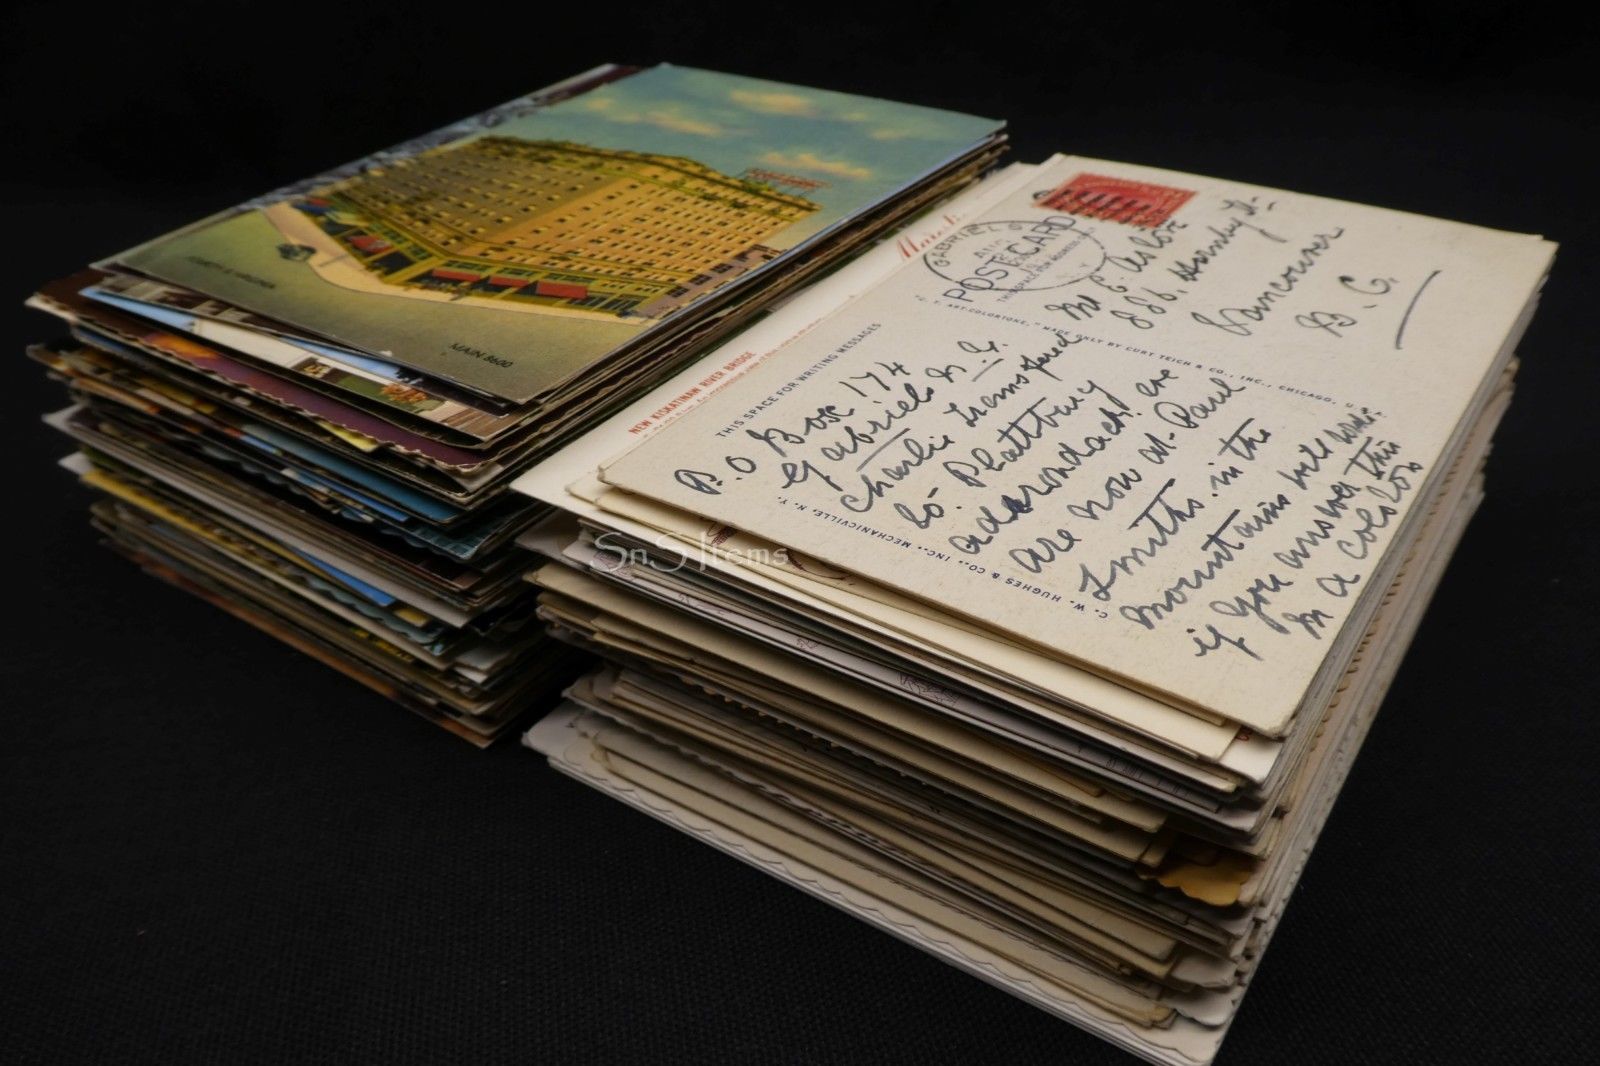 FORREST & VIRGINIA
MAIN 8600
NEW KISKATINAW RIVER BRIDGE
GABRIELS
POST CARD
THIS SPACE FOR ADDRESS ONLY
"C. T. ART-COLORTONE," MADE ONLY BY CURT TEICH & CO., INC., CHICAGO, U. S. A.
886. Hornby St-
Vancouver
B. C.
THIS SPACE FOR WRITING MESSAGES
P. O Box 174
Gabriels N. Y.
Charlie Transfered
to. Plattbury
are now at Paul
Smiths. in the
mountains will write
if you answer this
in a
C. W. HUGHES & CO., INC., MECHANICVILLE, N. Y.
SnS Items